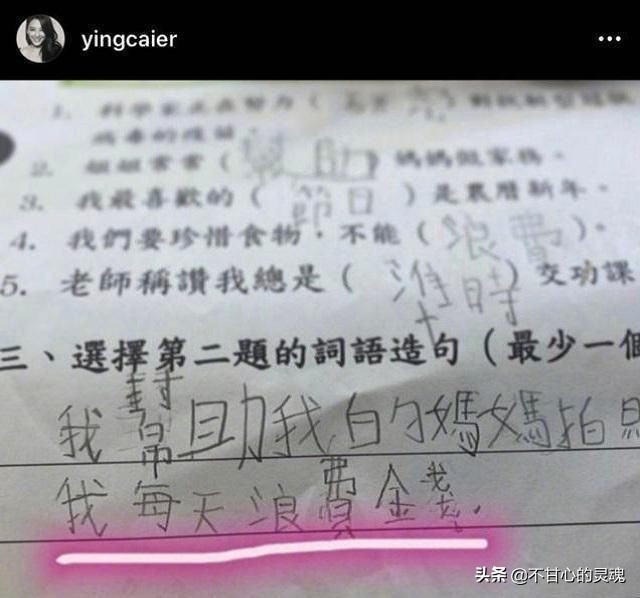 yingcaier
1. 科學家正在努力（ ）對抗新型冠狀
病毒的疫苗。
2. 姐姐常常（幫助）媽媽做家務。
3. 我最喜歡的（節日）是農曆新年。
4. 我們要珍惜食物，不能（浪費）。
5. 老師稱讚我總是（準時）交功課
三、選擇第二題的詞語造句（最少一個
我幫助我的媽媽拍照
我每天浪費金錢.
头条 @不甘心的灵魂